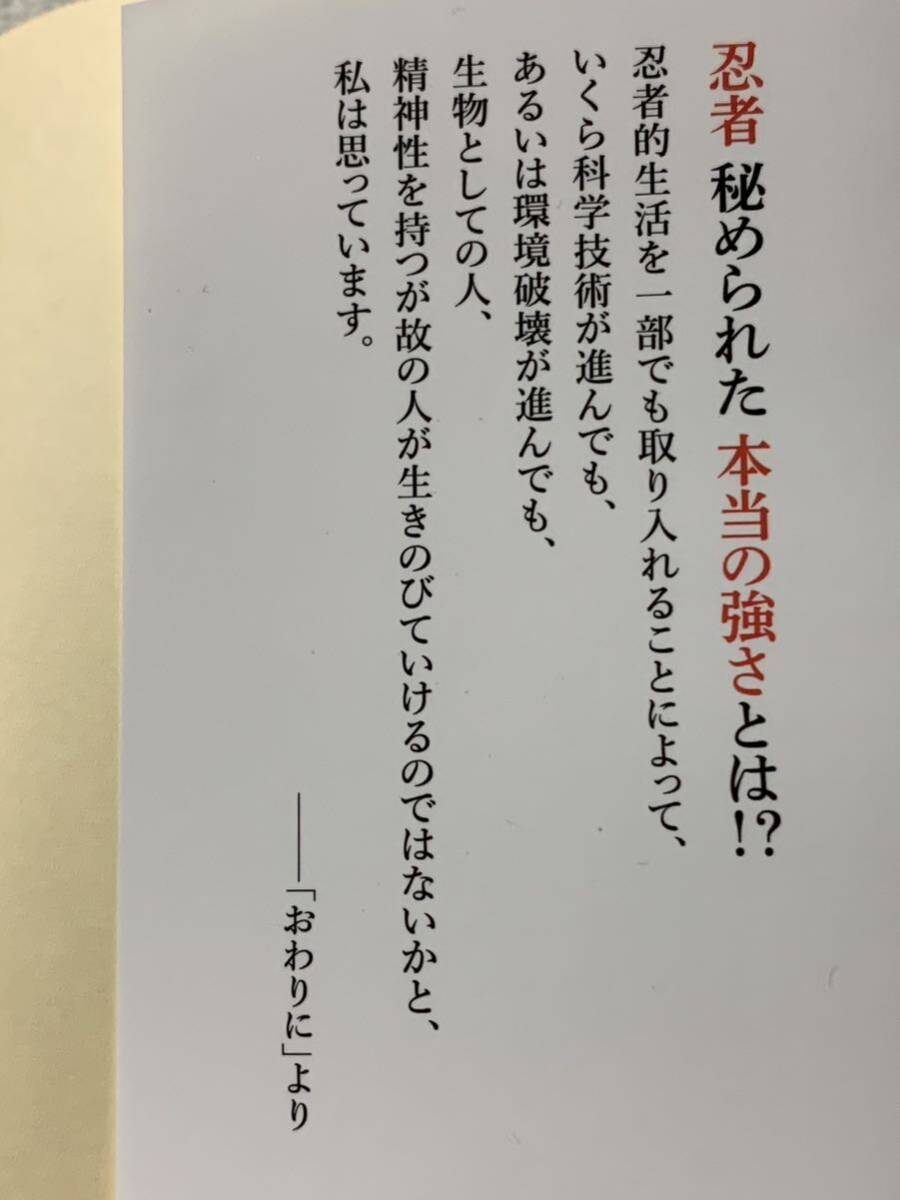 忍者 秘められた 本当の強さとは!?
忍者的生活を一部でも取り入れることによって、
いくら科学技術が進んでも、
あるいは環境破壊が進んでも、
生物としての人、
精神性を持つが故の人が生きのびていけるのではないかと、
私は思っています。
――「おわりに」より